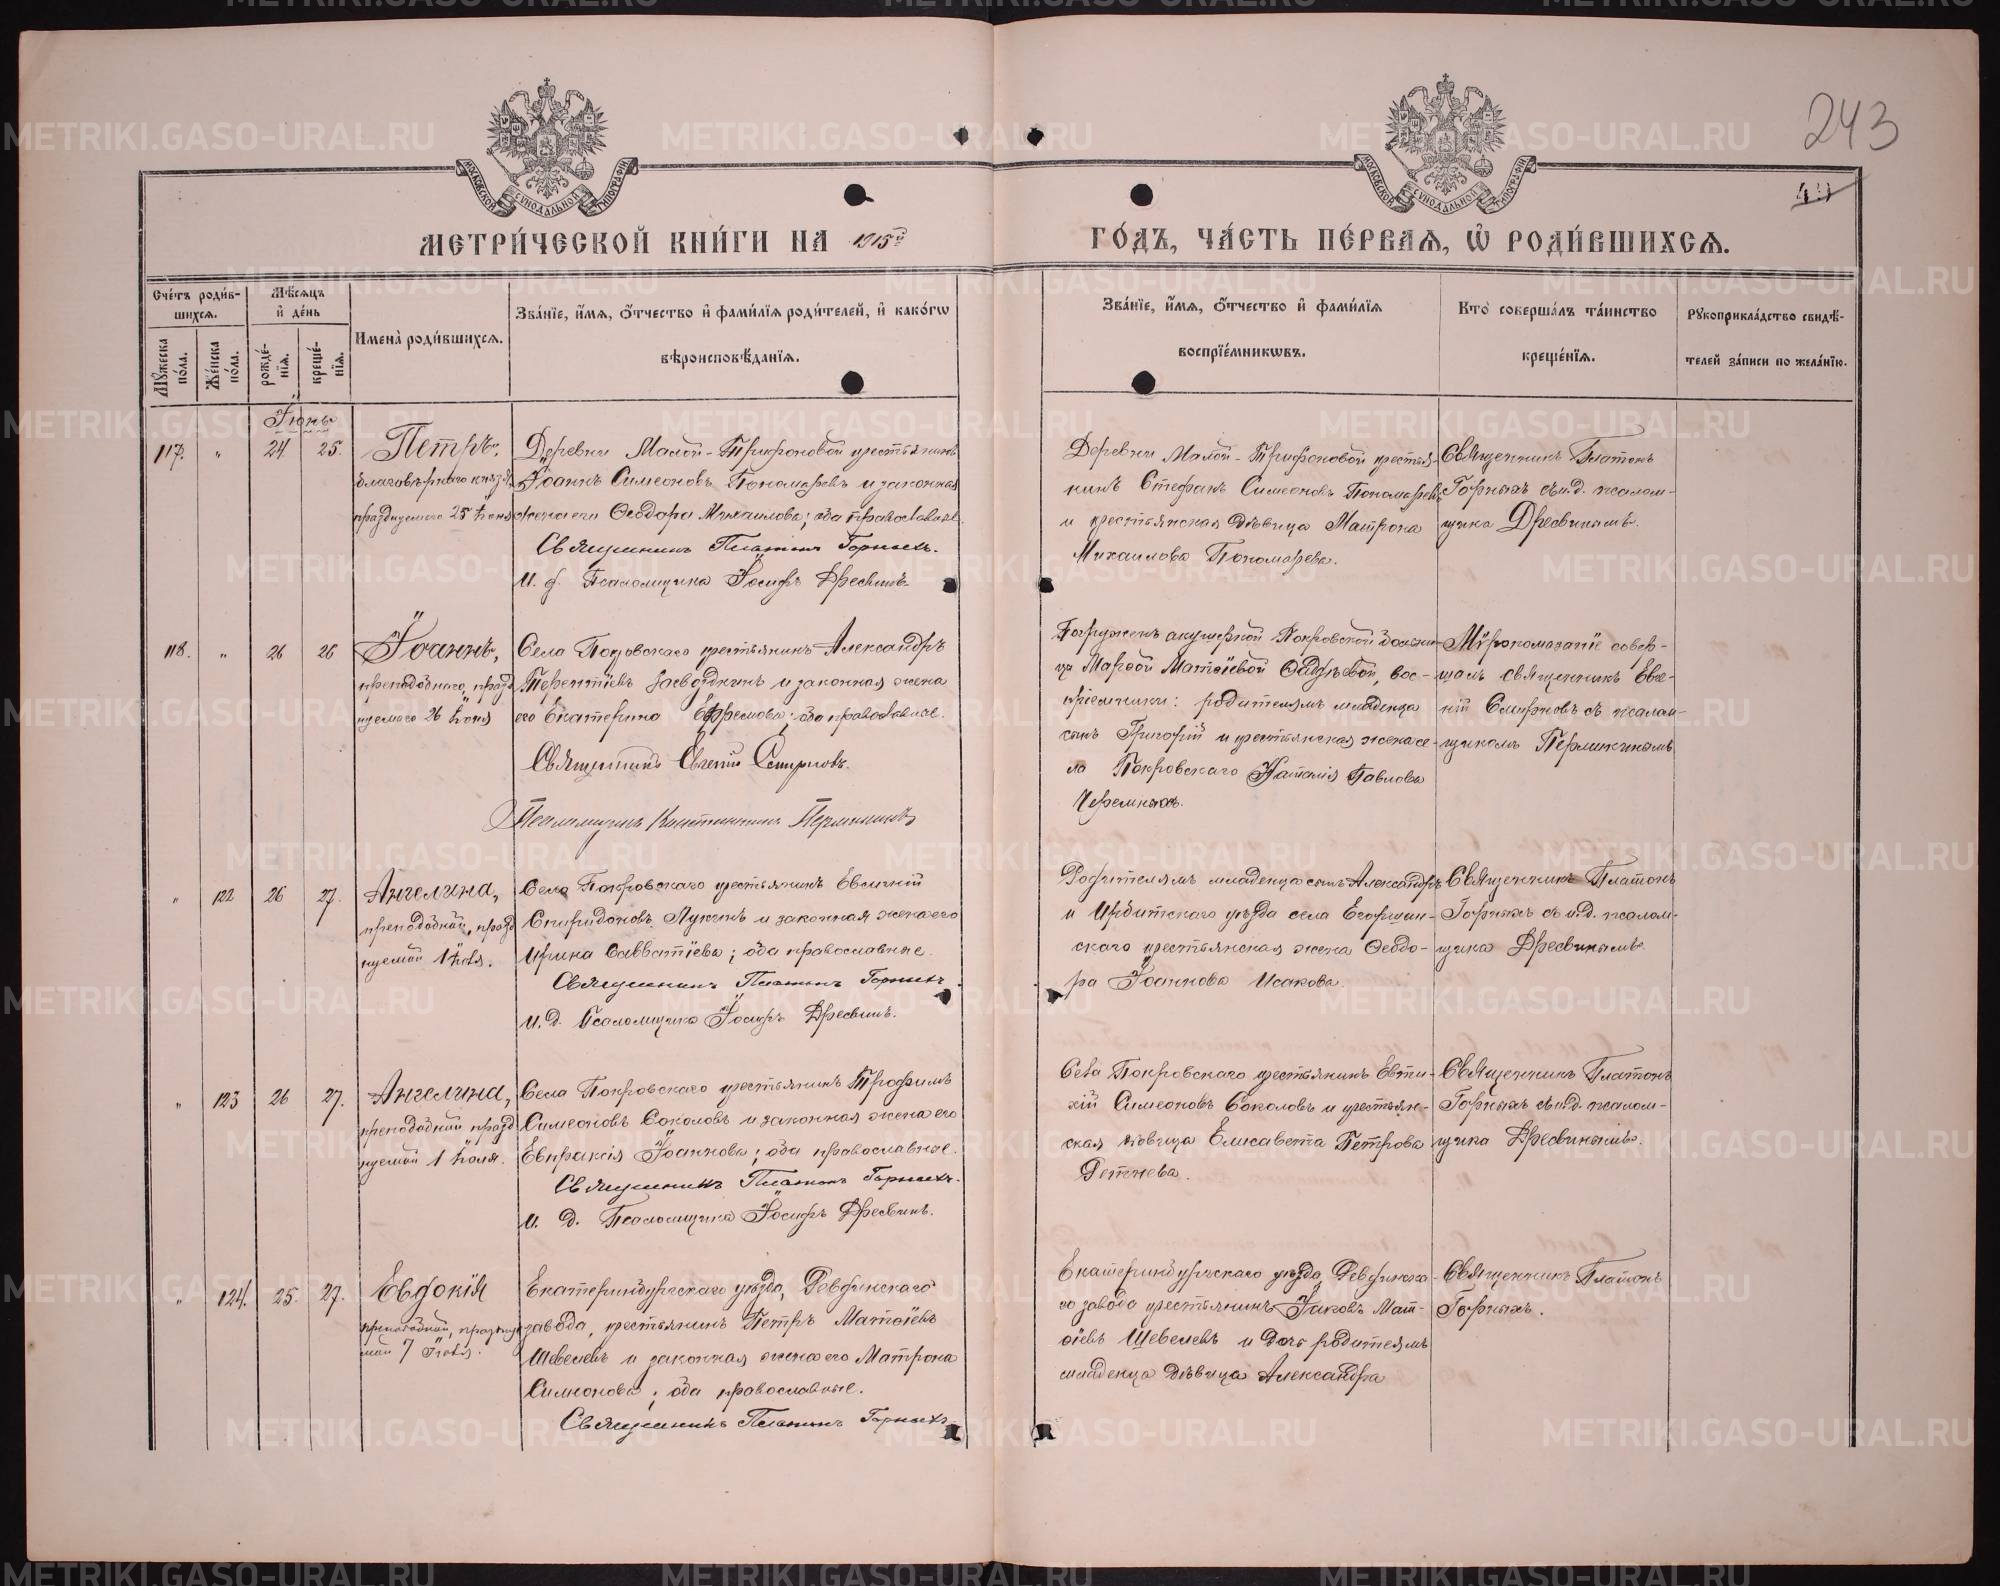 243
49
МОСКОВСКОЙ СѴНОДАЛЬНОЙ ТИПОГРАФІИ
МОСКОВСКОЙ СѴНОДАЛЬНОЙ ТИПОГРАФІИ
МЕТРИ́ЧЕСКОЙ КНИ́ГИ НА 1915й ГО́ДЪ, ЧА́СТЬ ПЕ́РВАѦ, Ѡ҆ РОДИ́ВШИХСѦ.
Сче́тъ роди́в-
шихсѧ.
Мѣ́сѧцъ
и҆ де́нь
Мꙋ́жеска
по́ла.
Же́нска
по́ла.
рожде́-
нїѧ.
креще́-
нїѧ.
Имена̀ роди́вшихсѧ.
Зва́нїе, и҆́мѧ, ѻ҆́тчество и҆ фами́лїѧ роди́телей, и҆ како́гѡ
вѣроисповѣ́данїѧ.
Зва́нїе, и҆́мѧ, ѻ҆́тчество и҆ фами́лїѧ
воспрїе́мникѡвъ.
Кто̀ соверша́лъ та́инство
креще́нїѧ.
Рꙋкоприкла́дство свидѣ́-
телей за́писи по жела́нїю.
Іюнь
117. " 24 25. Петръ,
благовѣрнаго князя,
празднуемаго 25 Іюня
Деревни Малой-Трифоновой крестьянинъ
Іоаннъ Симеоновъ Пономаревъ и законная
жена его Ѳеодора Михаилова; оба православн.
Священникъ Платонъ Горныхъ.
И. д. Псаломщика Іосифъ Дресвинъ.
Деревни Малой-Трифоновой крестья-
нинъ Стефанъ Симеоновъ Пономаревъ
и крестьянская дѣвица Матрона
Михаилова Пономарева.
Священникъ Платонъ
Горныхъ съ и.д. псалом-
щика Дресвинымъ.
118. " 26 26 Іоаннъ,
преподобнаго, празд
нуемаго 26 Іюня
Села Покровскаго крестьянинъ Александръ
Терентіевъ Заводкинъ и законная жена
его Екатерина Ефремова; оба православные.
Священникъ Евгеній Смирновъ.
Псаломщикъ Константинъ Перминовъ
Погруженъ акушеркой Покровской больни-
цы Марѳой Матѳіевой, вос-
пріемники: родителямъ младенца
сынъ Григорій и крестьянская жена се-
ла Покровскаго Наталія Павлова
Черемныхъ.
Мѵропомазаніе совер-
шалъ священникъ Евге-
ній Смирновъ съ псалом-
щикомъ
" 122 26 27. Ангелина,
преподобной, празд
нуемой 1 Іюля.
Села Покровскаго крестьянинъ Евсигній
Спиридоновъ Лукинъ и законная жена его
Ирина Савватіева; оба православные.
Священникъ Платонъ Горныхъ
И.д. Псаломщика Іосифъ Дресвинъ.
Родителямъ младенца сынъ Александръ
и Ирбитскаго уѣзда села Егоршин-
скаго крестьянская жена Ѳеодо-
ра Іоаннова Исакова.
Священникъ Платонъ
Горныхъ съ и.д. псалом-
щика Дресвинымъ.
" 123 26 27. Ангелина,
преподобной празд
нуемой 1 Іюля.
Села Покровскаго крестьянинъ Трофимъ
Симеоновъ Соколовъ и законная жена его
Евпраксія Іоаннова; оба православные.
Священникъ Платонъ Горныхъ.
И. д. Псаломщика Іосифъ Дресвинъ.
Села Покровскаго крестьянинъ Евти-
хій Симеоновъ Соколовъ и крестьян-
ская дѣвица Елисавета Петрова
Ретнева.
Священникъ Платонъ
Горныхъ съ и.д. псалом-
щика Дресвинымъ.
" 124. 25. 27. Евдокія
преподобной, празднуе
мой 7 Іюля.
Екатеринбургскаго уѣзда, Ревдинскаго
завода, крестьянинъ Петръ Матѳіевъ
Шевелевъ и законная жена его Матрона
Симеонова; оба православные.
Священникъ Платонъ Горныхъ
Екатеринбургскаго уѣзда, Ревдинска-
го завода крестьянинъ Іаковъ Мат-
ѳіевъ Шевелевъ и дочь родителямъ
младенца дѣвица Александра
Священникъ Платонъ
Горныхъ.
METRIKI.GASO-URAL.RU